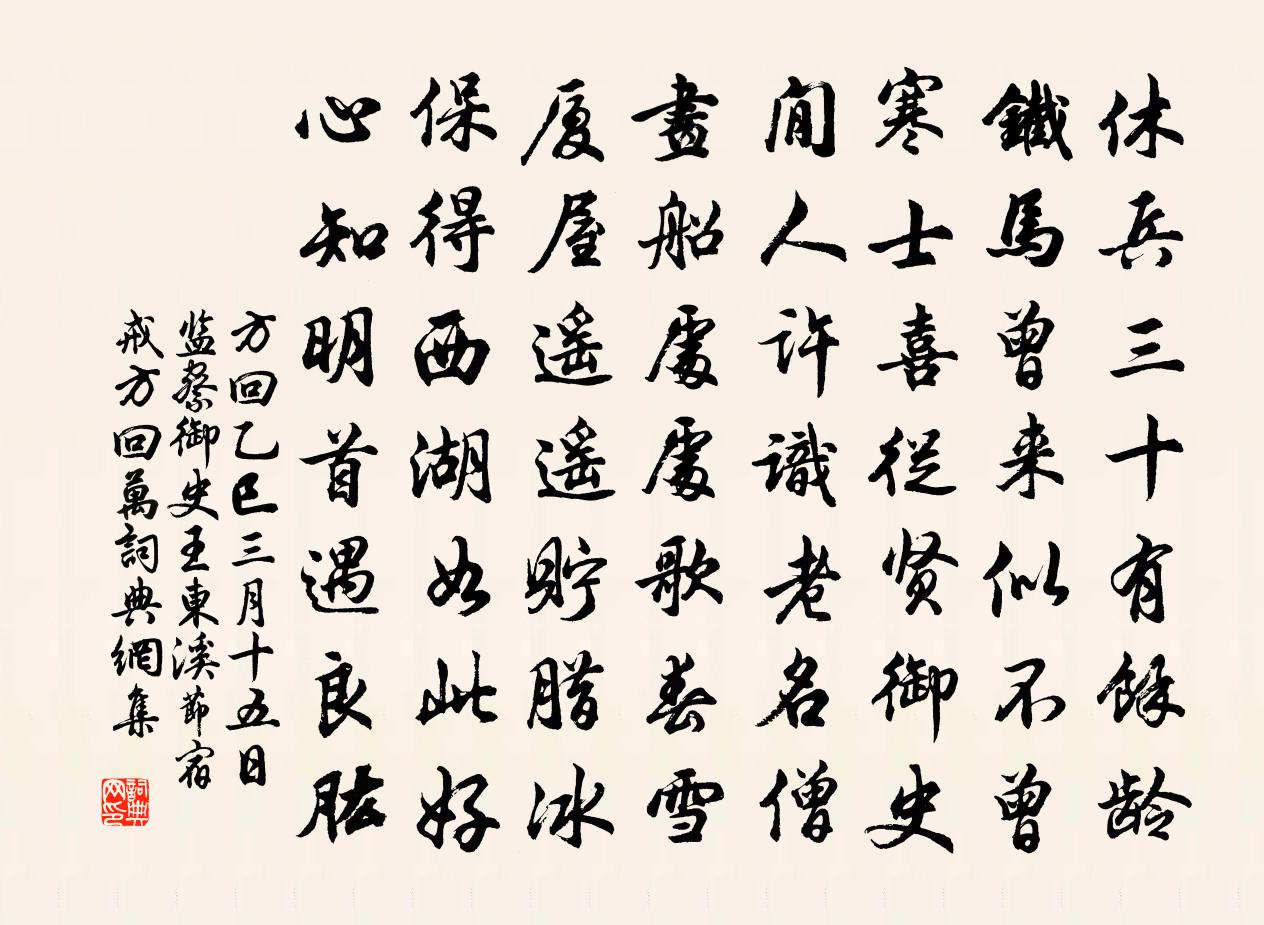 休兵三十有餘齡
鐵馬曾来似不曾
寒士喜從贤御史
閒人許識老名僧
畫船處處歌春雪
厦屋遥遥貯腊冰
保得西湖如此好
心知明首遇良肱
方回乙巳三月十五日
监察御史王東溪節宿
戒方回萬詞典網集
詞典网印